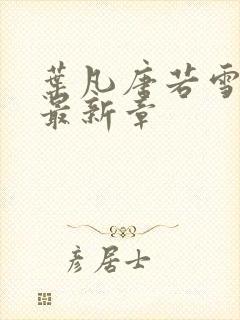 葉凡唐若雪
最新章
彦居士